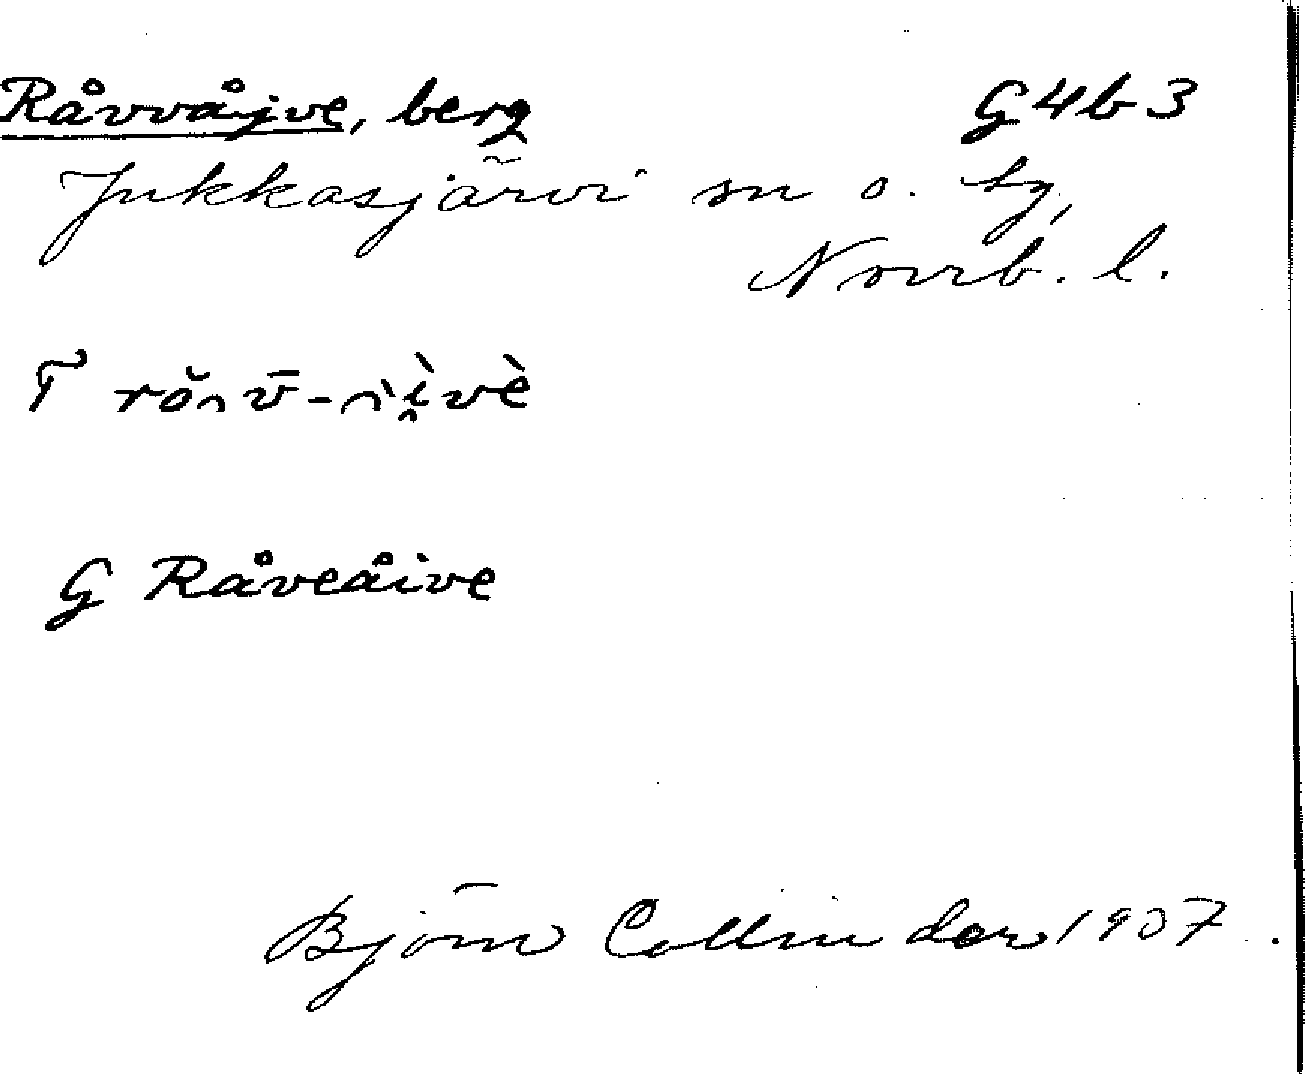 Råvvåjve, berg G4b3
Jukkasjärvi sn o. tg,
Norrb. l.
T
G Råveåive
Björn Collinder 1907.